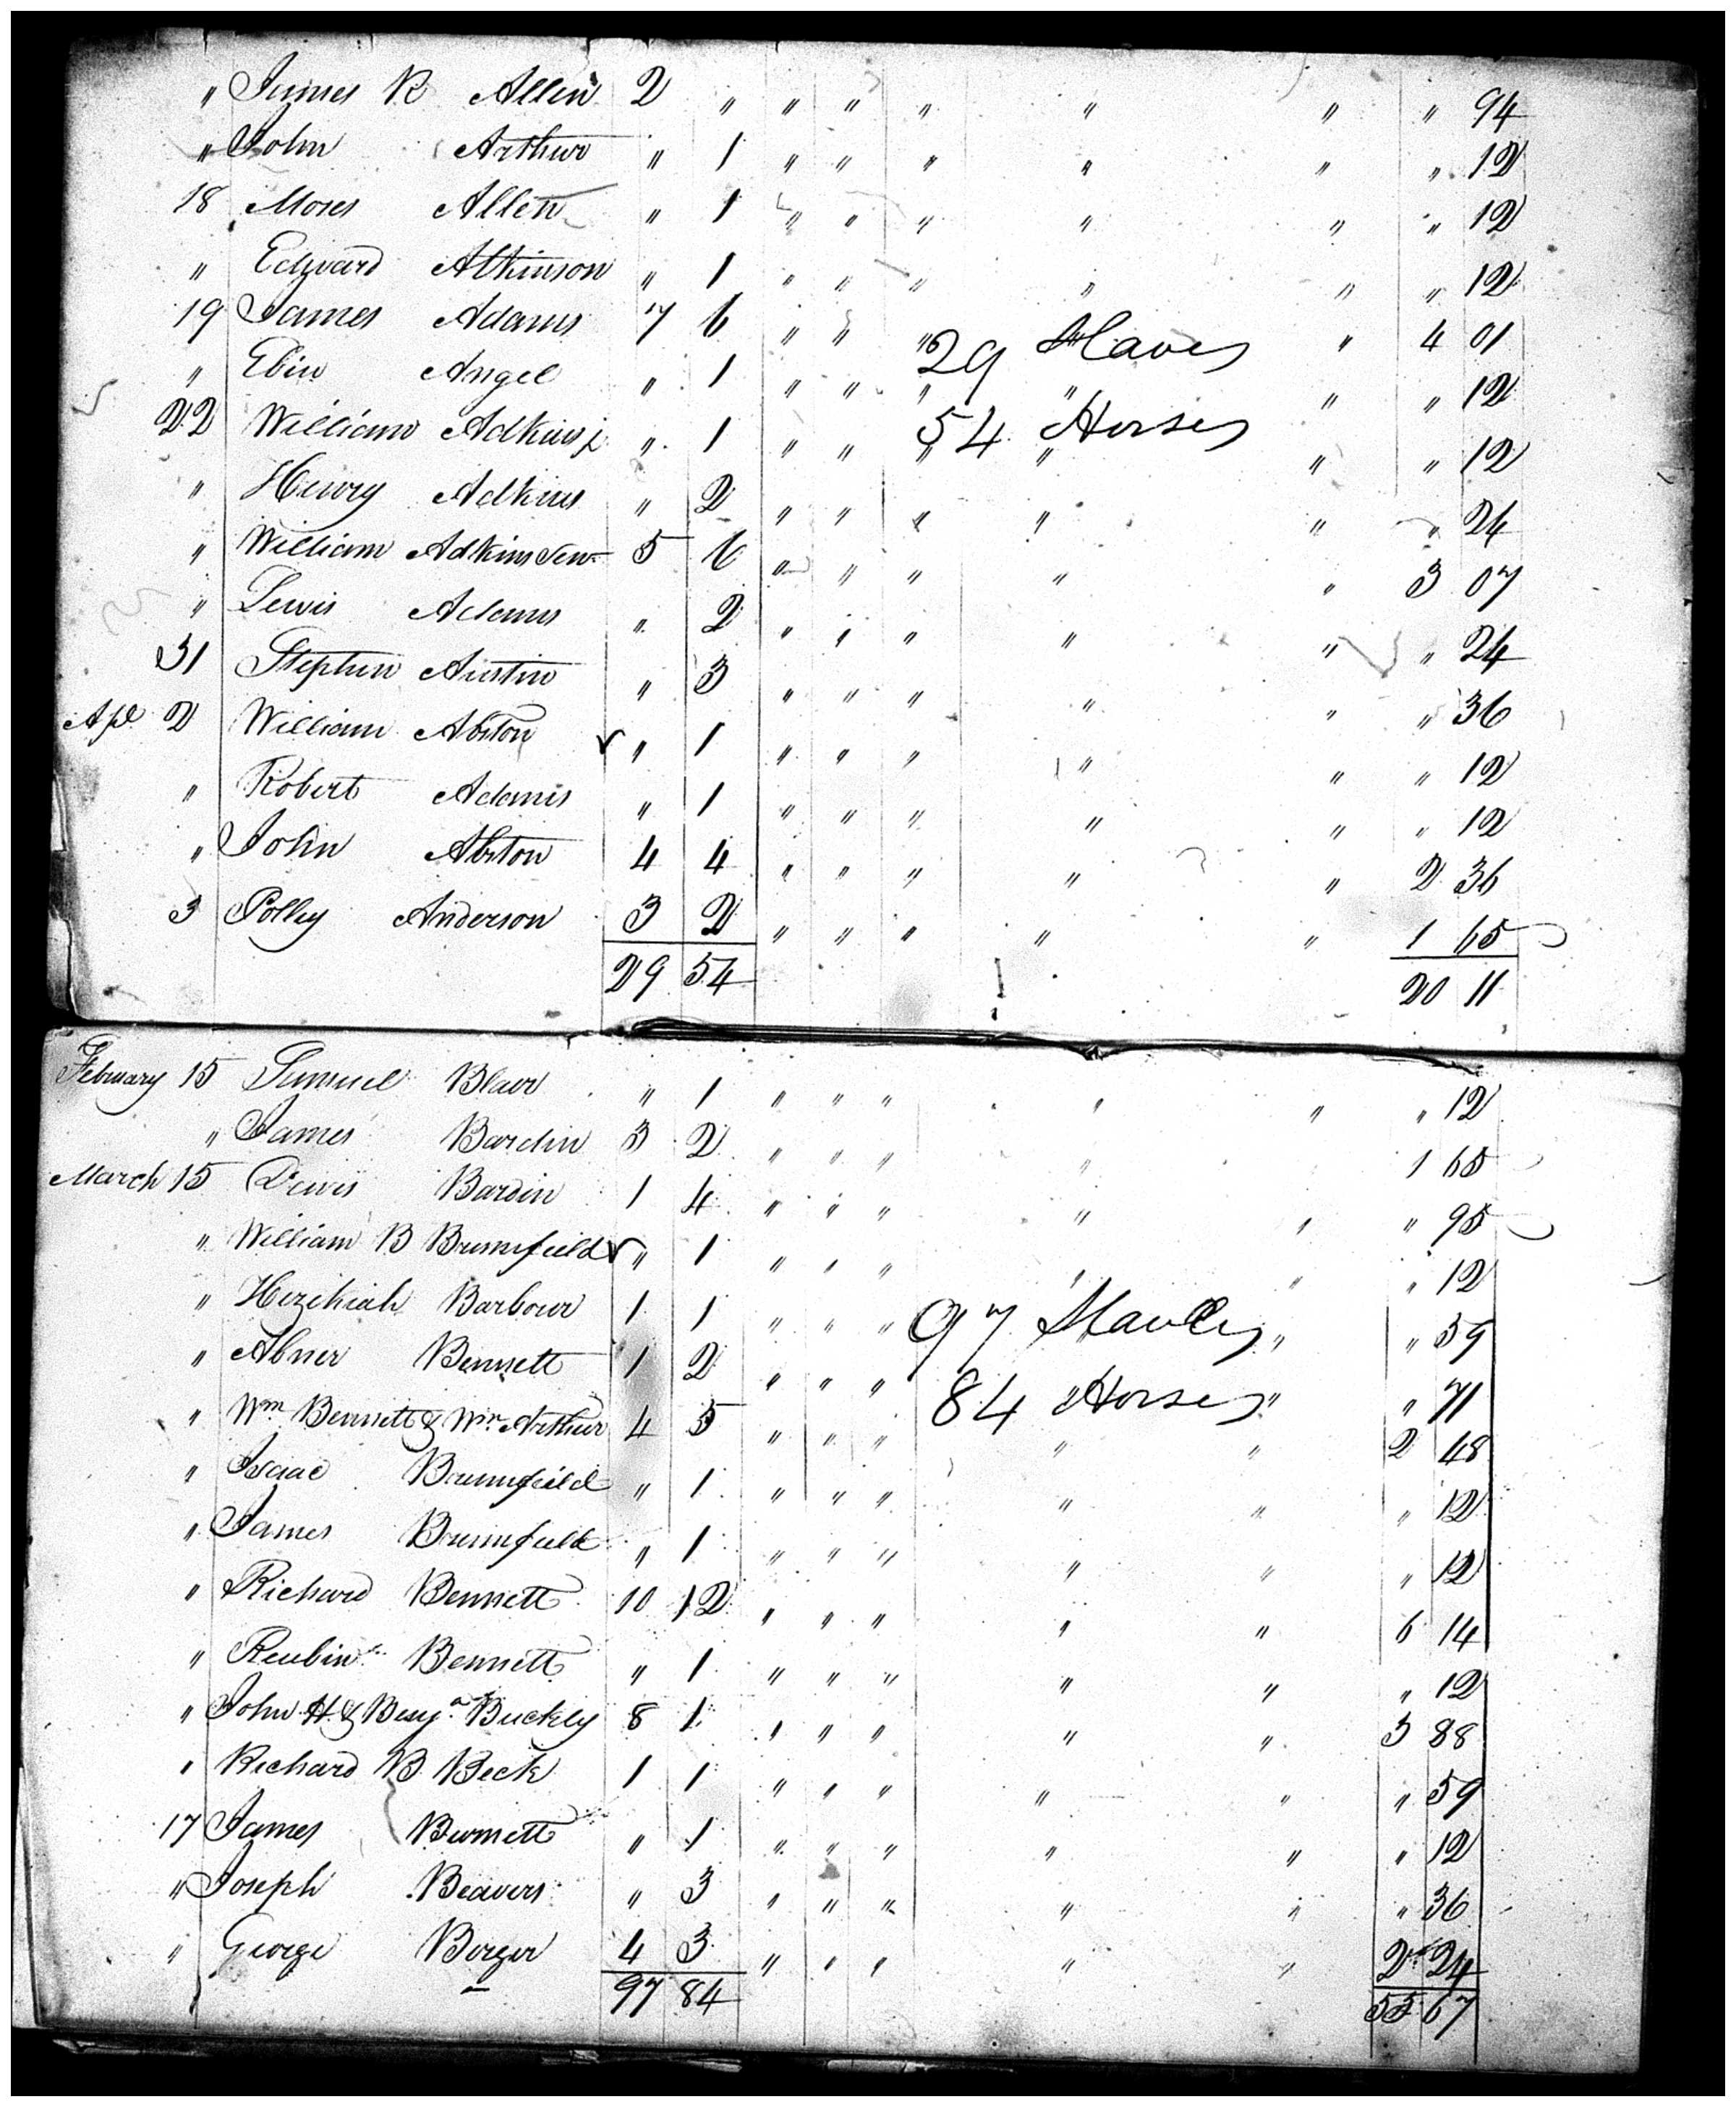 " James R Allen 2 " " " " " " " 94
" John Arthur " 1 " " " " " " 12
18 Moses Allen " 1 " " " " " " 12
" Edward Atkinson " 1 " " " " " " 12
19 James Adams 7 6 " " " " " 4 01
29 Slaves
" Ebin Angel " 1 " " " " " " 12
22 William Adkins jr " 1 " " " " " " 12
54 Horses
" Henry Adkins " 2 " " " " " " 24
" William Adkins Senr 5 6 " " " " " 3 07
" Lewis Adams " 2 " " " " " " 24
31 Stephen Austin " 3 " " " " " " 36
Apl 2 William Abston " 1 " " " " " " 12
" Robert Adams " 1 " " " " " " 12
" John Abston 4 4 " " " " " 2 36
3 Polley Anderson 3 2 " " " " " 1 65
29 54 20 11
February 15 Samuel Blair " 1 " " " " " " 12
" James Bardin 3 2 " " " " 1 65
March 15 Lewis Bardin 1 4 " " " " " " 95
" William B Brumfield " 1 " " " " " " 12
" Hezekiah Barbour 1 1 " " " " " 59
97 Slaves
" Abner Bennett 1 2 " " " " " 71
84 Horses
" Wm Bennett & Wm Arthur 4 5 " " " " " 2 48
" Isaac Brumfield " 1 " " " " " " 12
" James Brumfield " 1 " " " " " " 12
" Richard Bennett 10 12 " " " " " 6 14
" Reubin Bennett " 1 " " " " " " 12
" John H & Benja Buckly 8 1 " " " " " 3 88
" Richard B Beck 1 1 " " " " " " 59
17 James Burnett " 1 " " " " " " 12
" Joseph Beavers " 3 " " " " " " 36
" George Berger 4 3 " " " " " 2 24
97 84 55 67